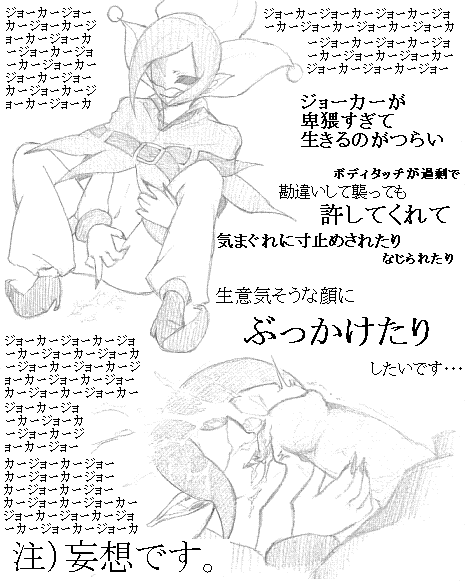 ジョーカージョー
カージョーカージ
ョーカージョーカ
ージョーカージョ
ーカージョーカー
ジョーカージョー
カージョーカージ
ョーカージョーカ
ジョーカージョーカージョーカージョ
ーカージョーカージョーカージョーカ
ージョーカージョーカージョ
ーカージョーカージョーカー
ジョーカージョーカージョー
ジョーカーが
卑猥すぎて
生きるのがつらい
ボディタッチが過剰で
勘違いして襲っても
許してくれて
気まぐれに寸止めされたり
なじられたり
生意気そうな顔に
ぶっかけたり
したいです…
ジョーカージョーカージョ
ーカージョーカージョーカ
ージョーカージョーカージ
ョーカージョーカージョー
カージョーカージョーカー
ジョーカージョ
ーカージョーカ
ージョーカージ
ョーカージョー
カージョーカージョー
カージョーカージョー
カージョーカージョー
カージョーカージョーカー
ジョーカージョーカージョ
ーカージョーカージョーカ
注)妄想です。